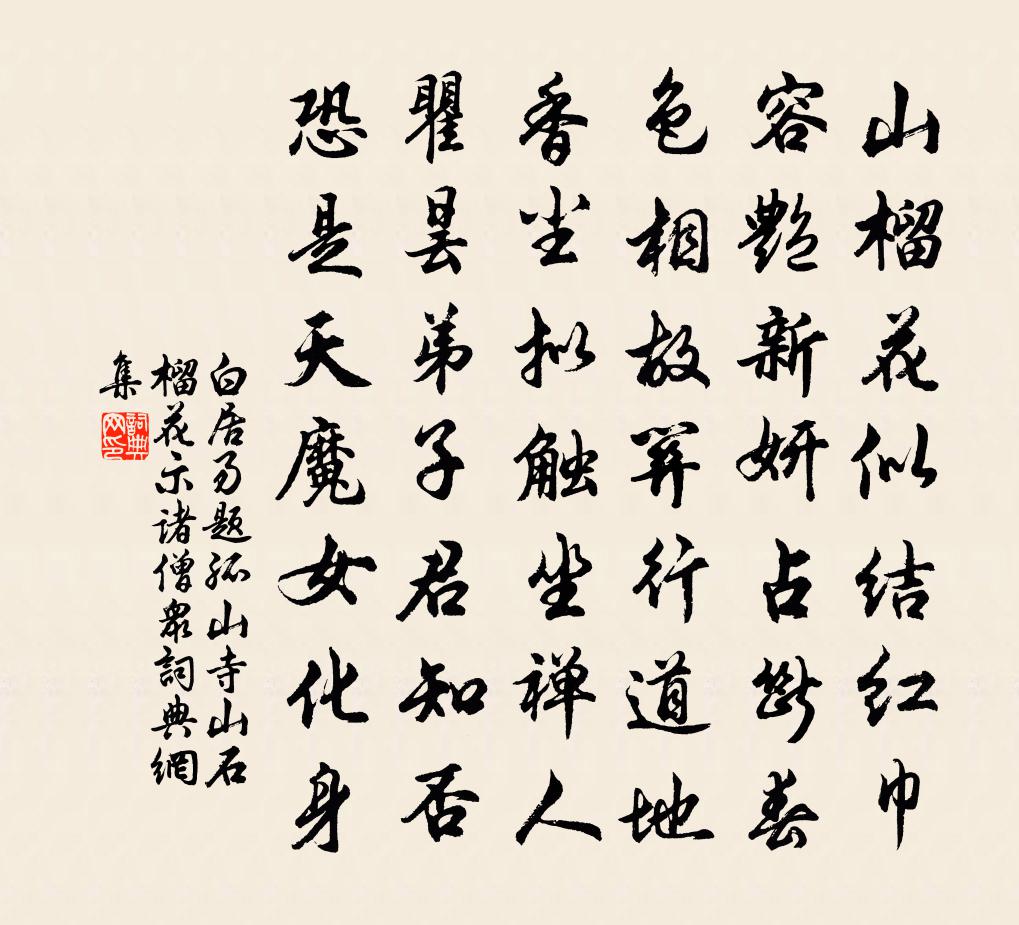 山榴花似结红巾
容艷新妍占斷春
色相故关行道地
香尘拟触坐禅人
瞿昙弟子君知否
恐是天魔女化身
白居易题孤山寺山石
榴花示诸僧眾詞典網
集
詞典
网印